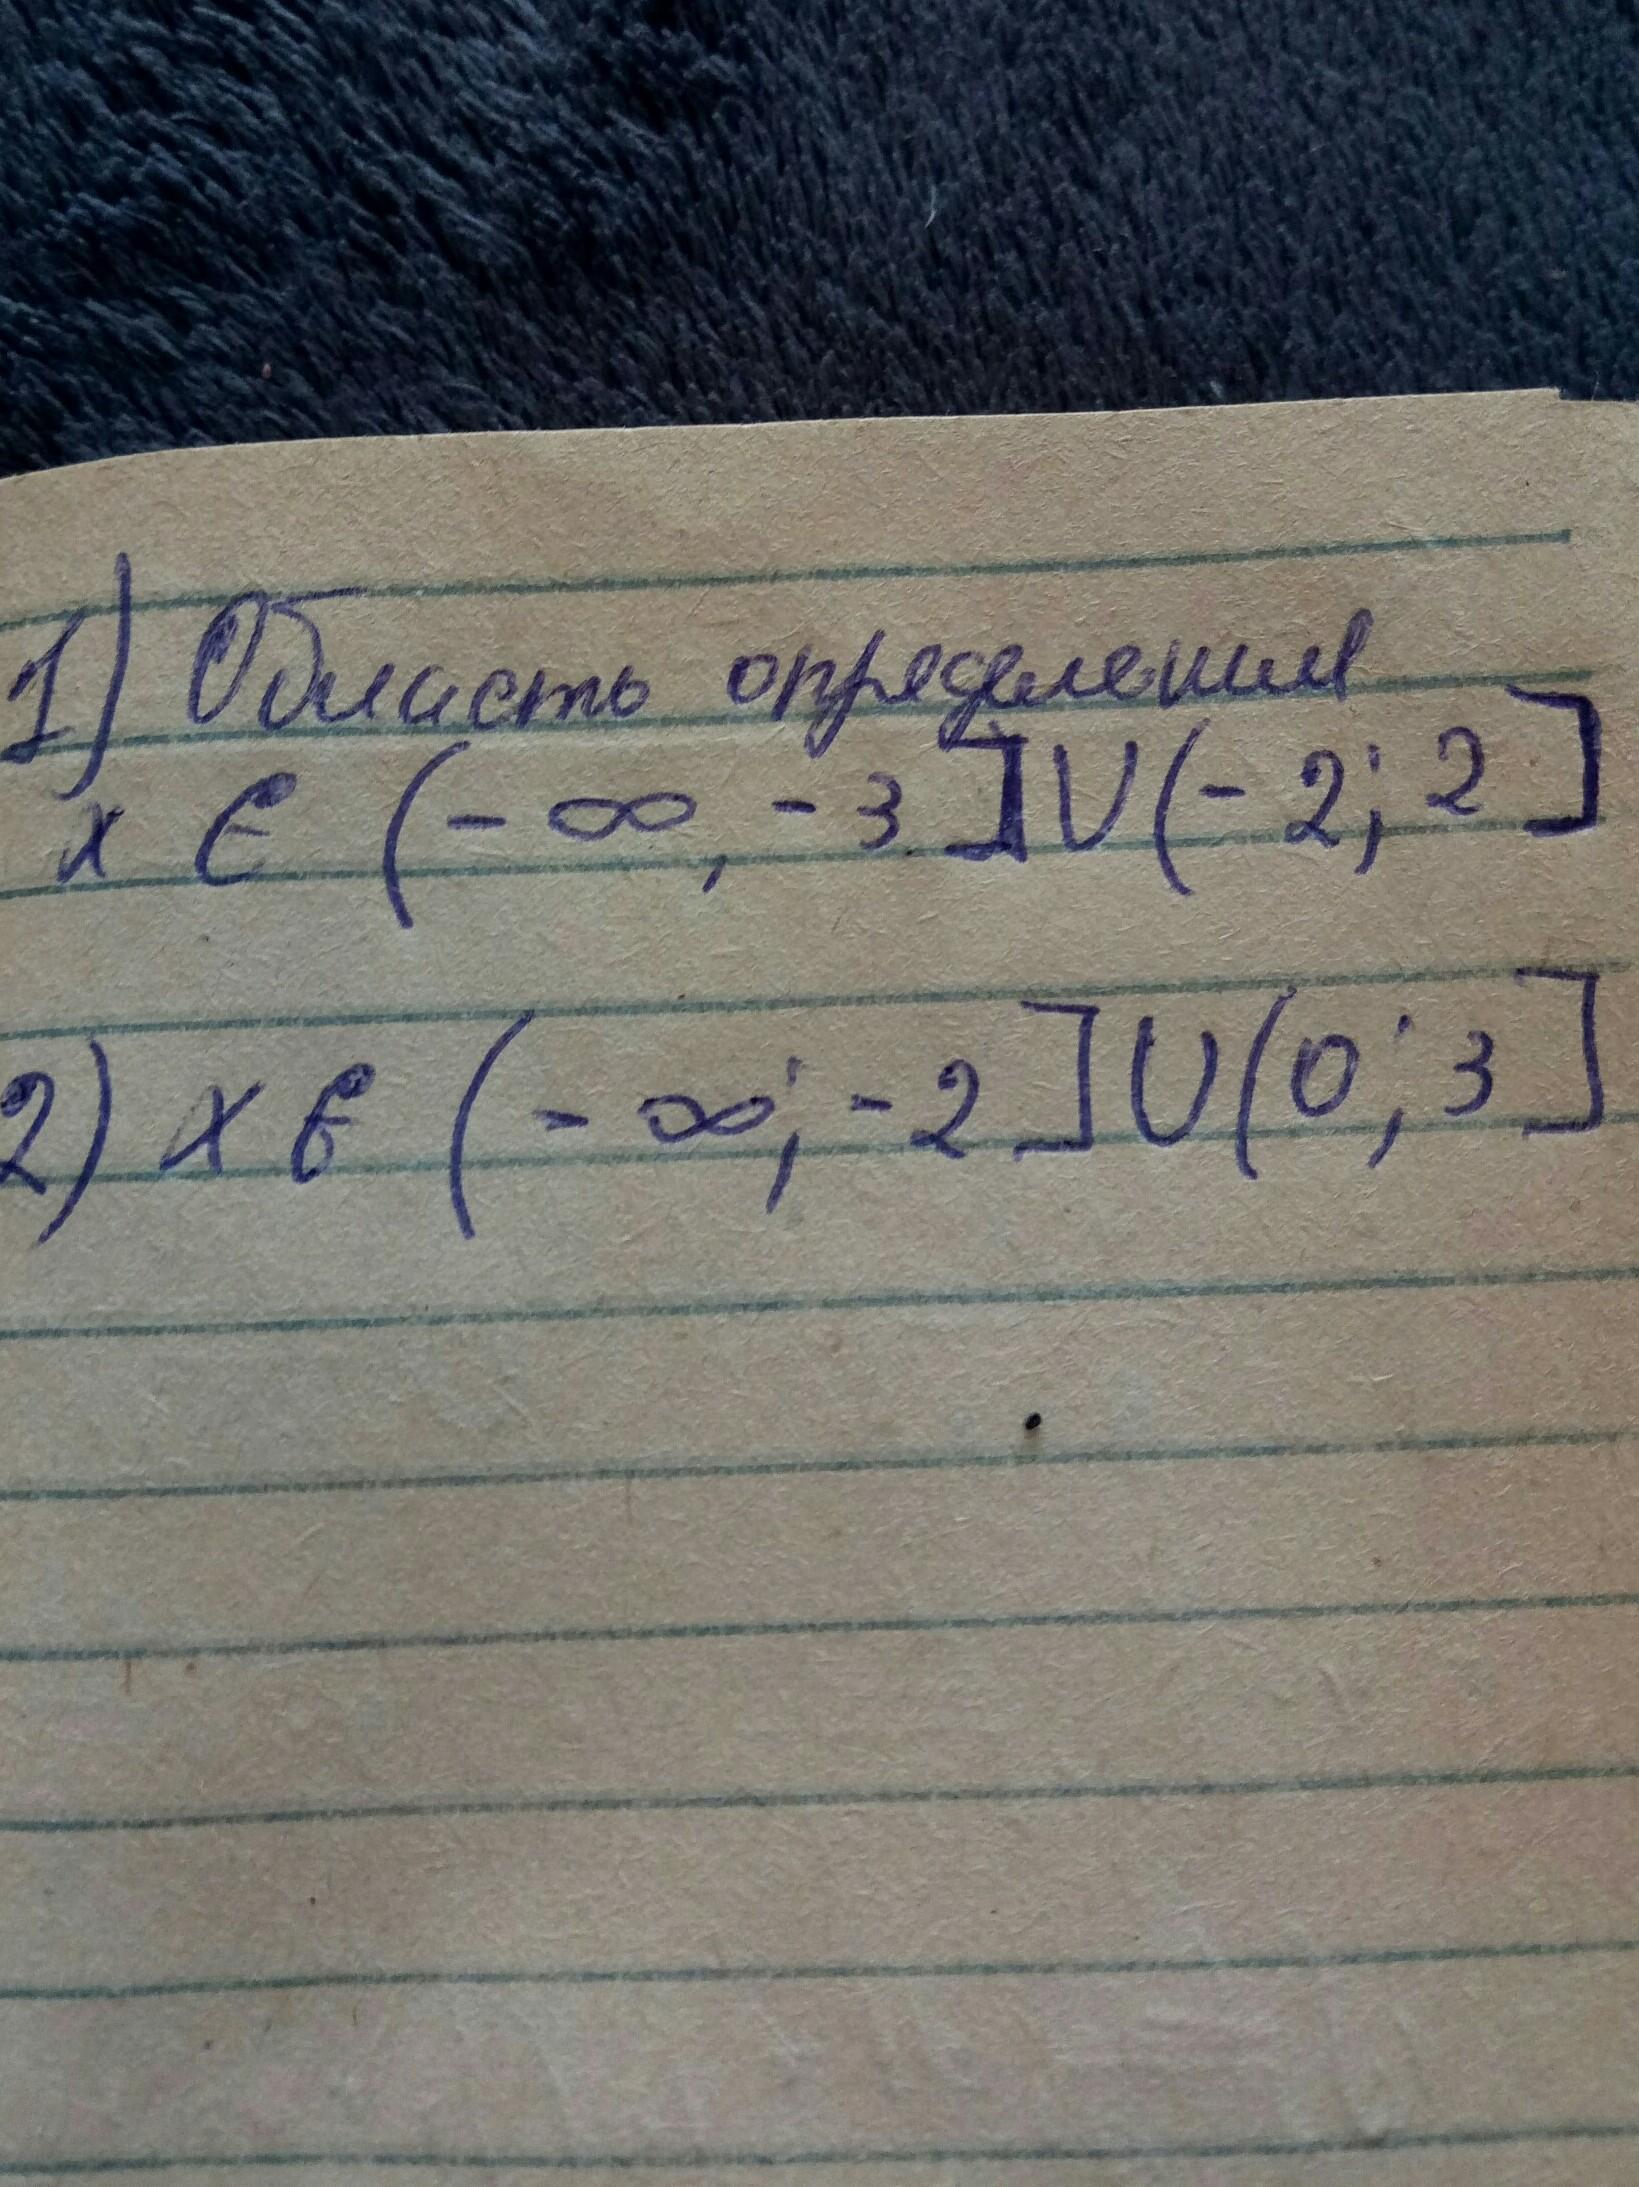 1) Область определения
x ∈ (- ∞, -3] U (- 2; 2]
2) x ∈ (- ∞; - 2] U (0; 3]